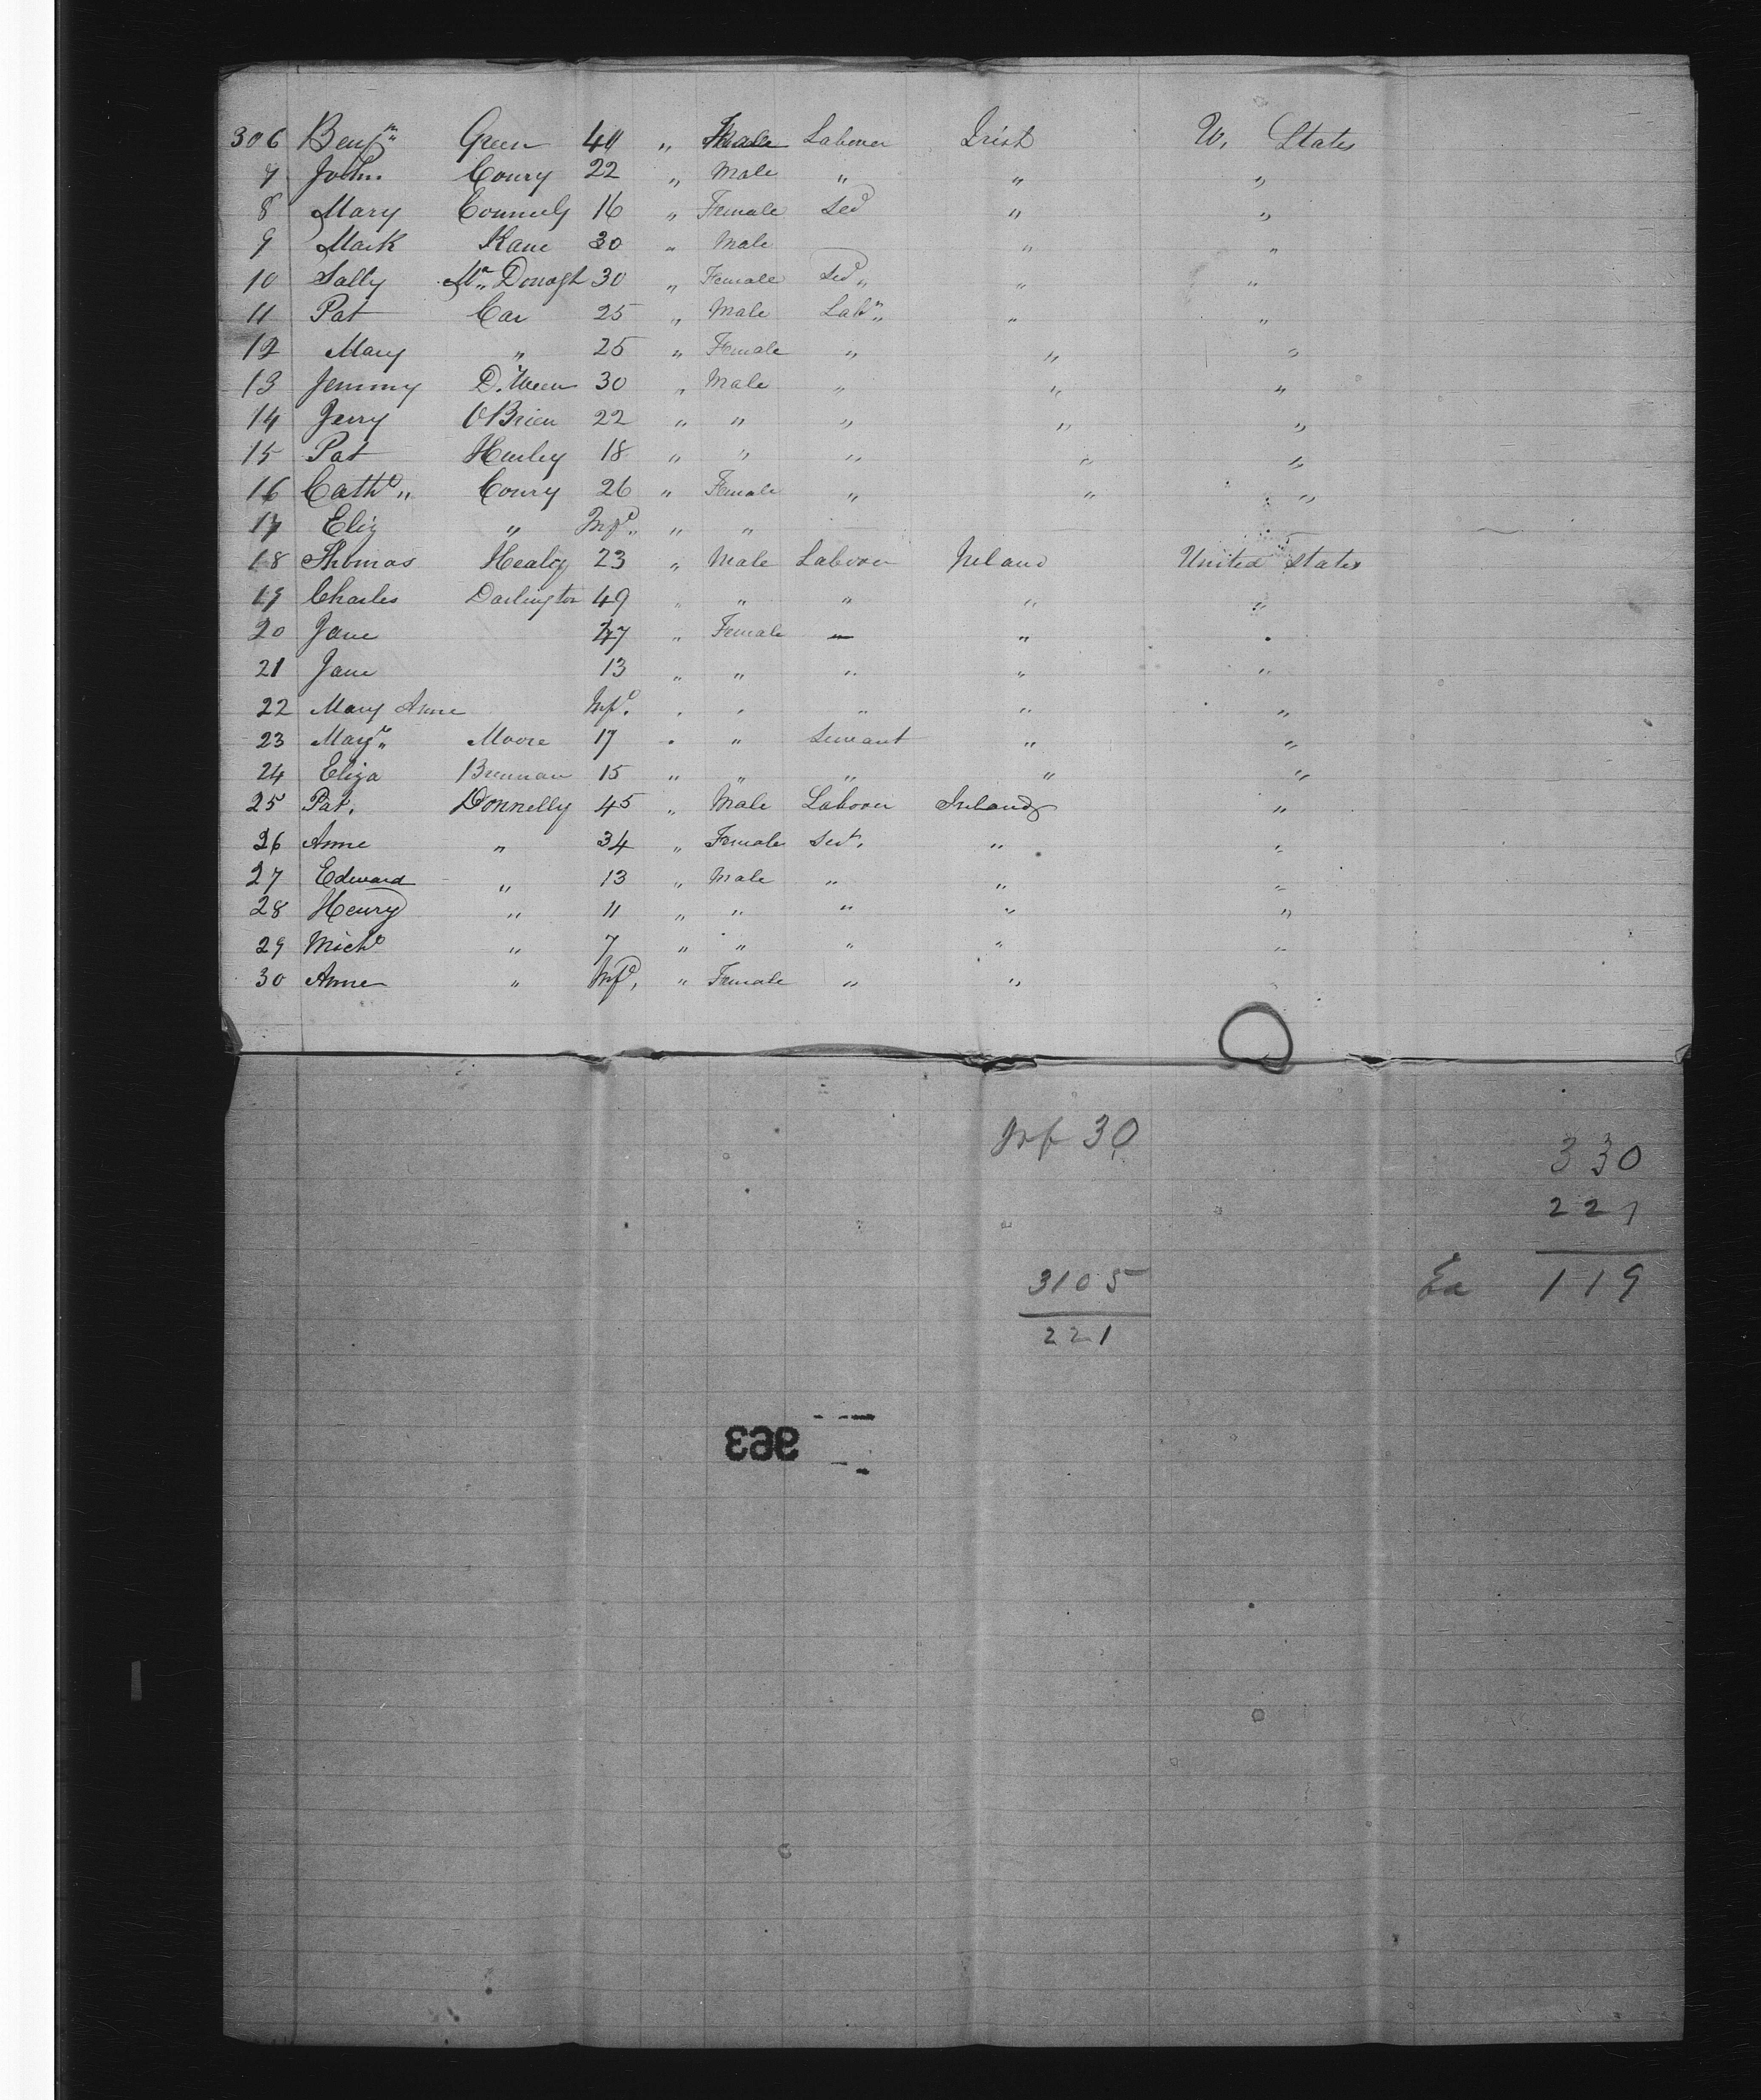 306 Benjn Green 40 " Male Laborer Irish U. States
7 John Coury 22 " Male " " "
8 Mary Connely 16 " Female Sed " "
9 Mark Kane 30 " Male " "
10 Sally Mc Donagh 30 " Female Sed " " "
11 Pat Car 25 " Male Labr " " "
12 Mary " 25 " Female " " "
13 Jemmy 30 " Male " " "
14 Jerry OBrien 22 " " " " "
15 Pat Hurley 18 " " " " "
16 Cathe " Coury 26 " Female " " "
17 Eliz " Infd " " "
18 Thomas Healy 23 " Male Laborer Ireland United States
19 Charles Darlington 49 " " " " "
20 Jane 47 " Female " " "
21 Jane 13 " " " " "
22 Mary Anne Infd. " " " " "
23 Margt " Moore 17 " " Servant " "
24 Eliza Brennan 15 " " " " "
25 Pat. Donnelly 45 " Male Laborer Ireland "
26 Anne " 34 " Female Sert. " "
27 Edward " 13 " Male " " "
28 Henry " 11 " " " " "
29 Michl " 7 " " " " "
30 Anne " Infd. " Female " "
Inf 30
330
221
Ea 119
3105
221
963